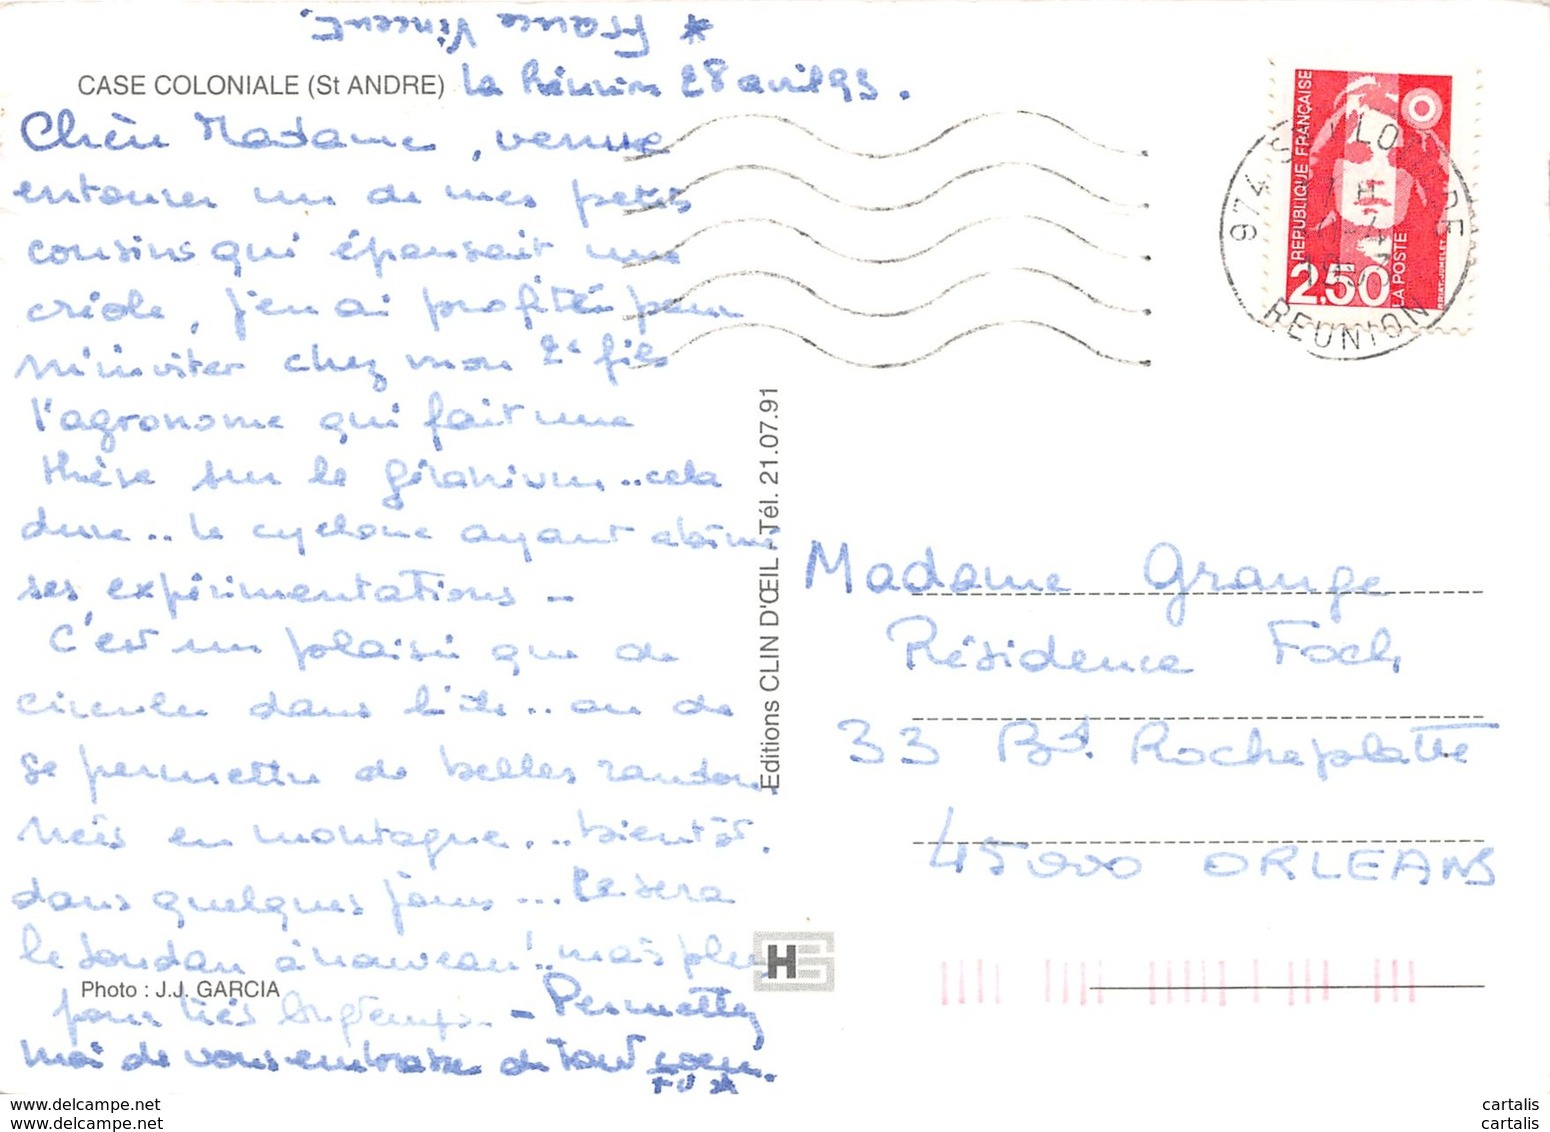 * France Vincent.
CASE COLONIALE (St ANDRE) La Réunion 28 avril 93.
Chère Madame, venue
entourer un de mes petits
cousins qui épousait une
créole, j'en ai profité pour
m'inviter chez mon 2e fils
l'agronome qui fait une
thèse sur le géranium.. cela
dure.. le cyclone ayant abîmé
ses expérimentations _
C'est un plaisir que de
circuler dans l'île.. ou de
se permettre de belles randon
nées en montagne... bientôt.
dans quelques jours... ce sera
le Soudan à nouveau!.. mais plus
pour très longtemps. _ Permettez
moi de vous embrasser de tout coeur.
Photo : J.J. GARCIA
Editions CLIN D'ŒIL - Tél. 21.07.91
HS
REPUBLIQUE FRANÇAISE
2,50
LA POSTE
974
REUNION
Madame Grange
Résidence Foch
33 Bd. Rocheplatte
45000 ORLEANS
www.delcampe.net
www.delcampe.net
cartalis
cartalis